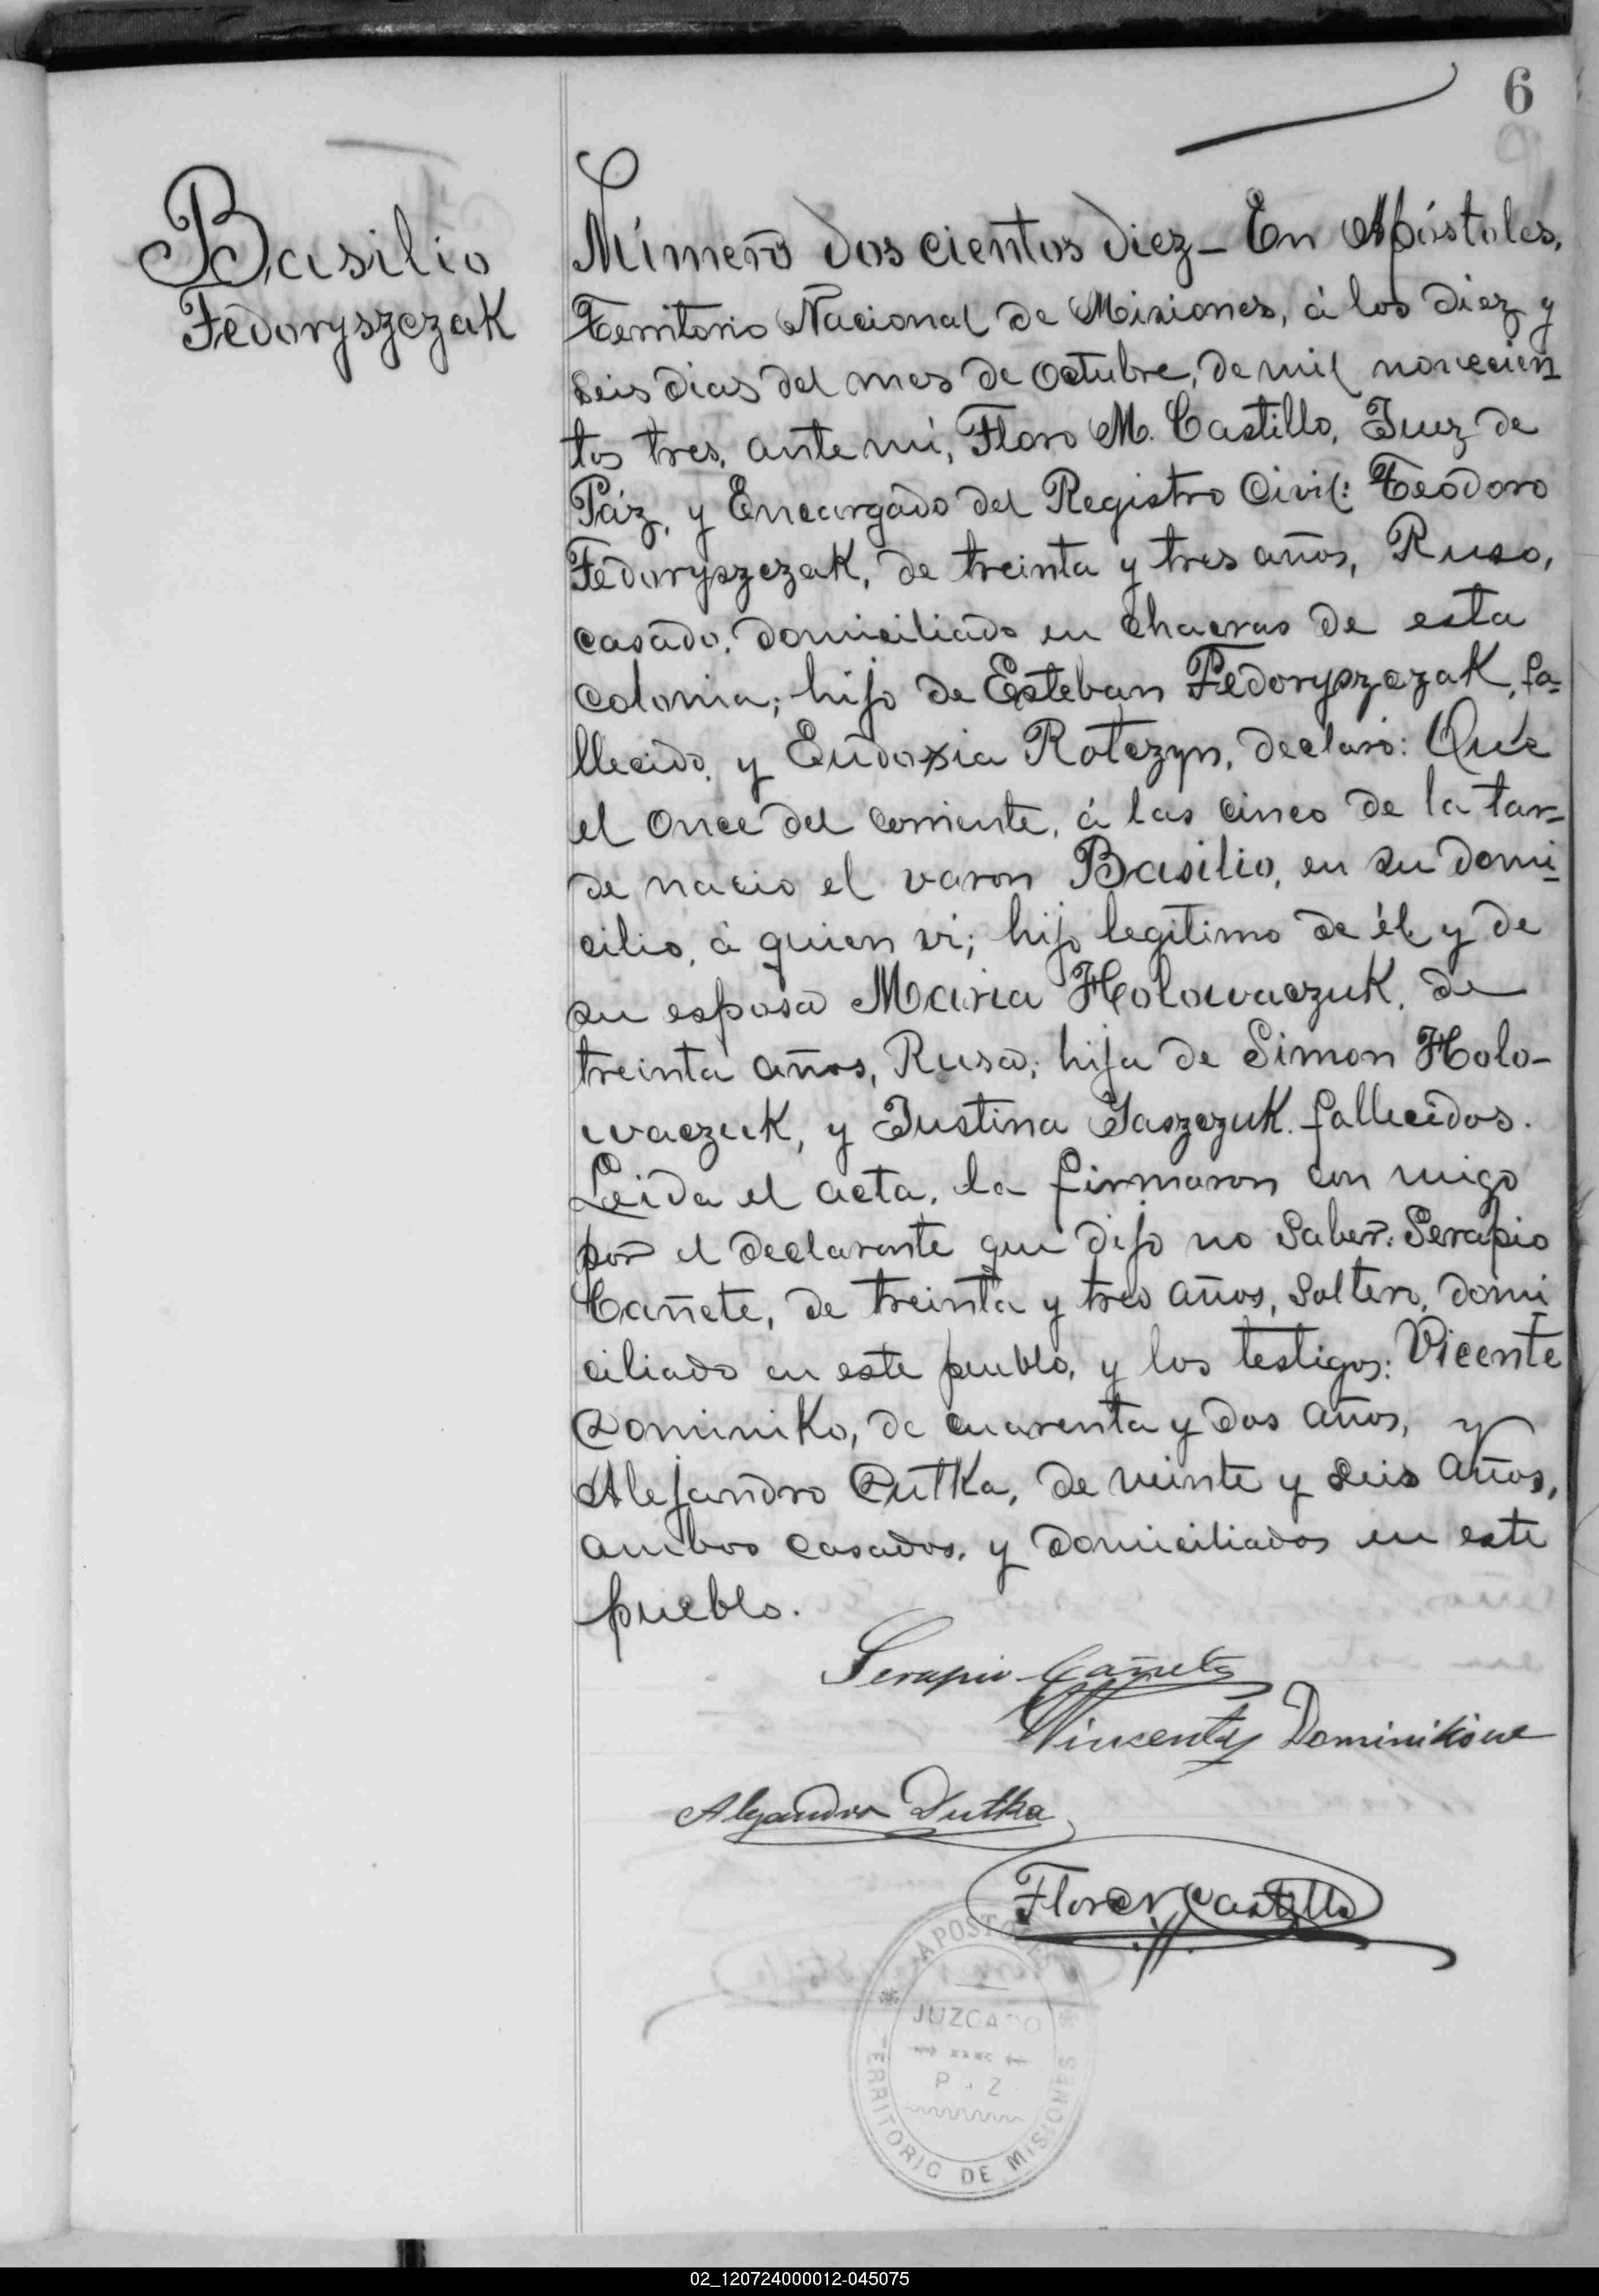 6
Basilio
Fedoryszczak
Número dos cientos diez - En Apóstoles,
Territorio Nacional de Misiones, á los diez y
seis dias del mes de Octubre, de mil novecien
tos tres, ante mí, Floro M. Castillo, Juez de
Páz, y Encargado del Registro Civil: Teodoro
Fedoryszczak, de treinta y tres años, Ruso,
casado, domiciliado en chacras de esta
Colonia; hijo de Esteban Fedoryszczak, fa-
llecido, y Eudoxia Rotczyn, declaró: Que
el once del corriente, á las cinco de la tar=
de nacio el varon Basilio, en su domi
cilio, á quien vi; hijo legitimo de él y de
su esposa Maria Holowaczuk, de
treinta años, Rusa; hija de Simon Holo-
waczuk, y Justina Jaszczuk, fallecidos.
Leida el acta, la firmaron con migo
por el declarante que dijo no saber: Serapio
Cañete, de treinta y tres años, soltero, domi
ciliado en este pueblo, y los testigos: Vicente
Dominiko, de cuarenta y dos años, y
Alejandro Dutka, de veinte y seis años,
ambos casados, y domiciliados en este
pueblo.
Serapio Cañete
Wincenty Dominików
Alejandro Dutka
Floro M Castillo
APOSTOLES
JUZGADO
P Z
TERRITORIO DE MISIONES
02_120724000012-045075